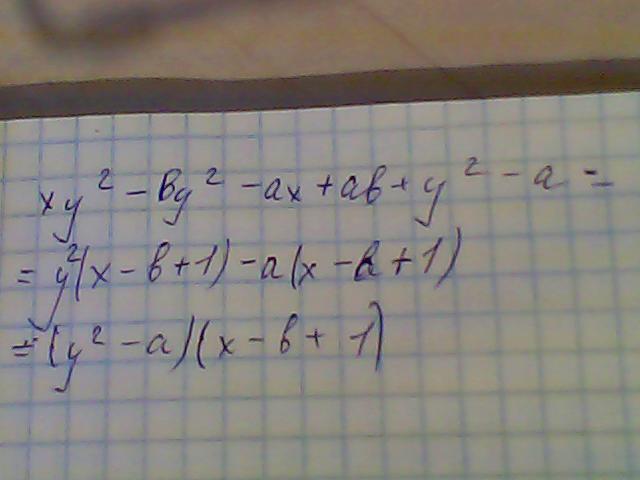 xy² - by² - ax + ab + y² - a =
= y²(x - b + 1) - a(x - b + 1)
= (y² - a)(x - b + 1)